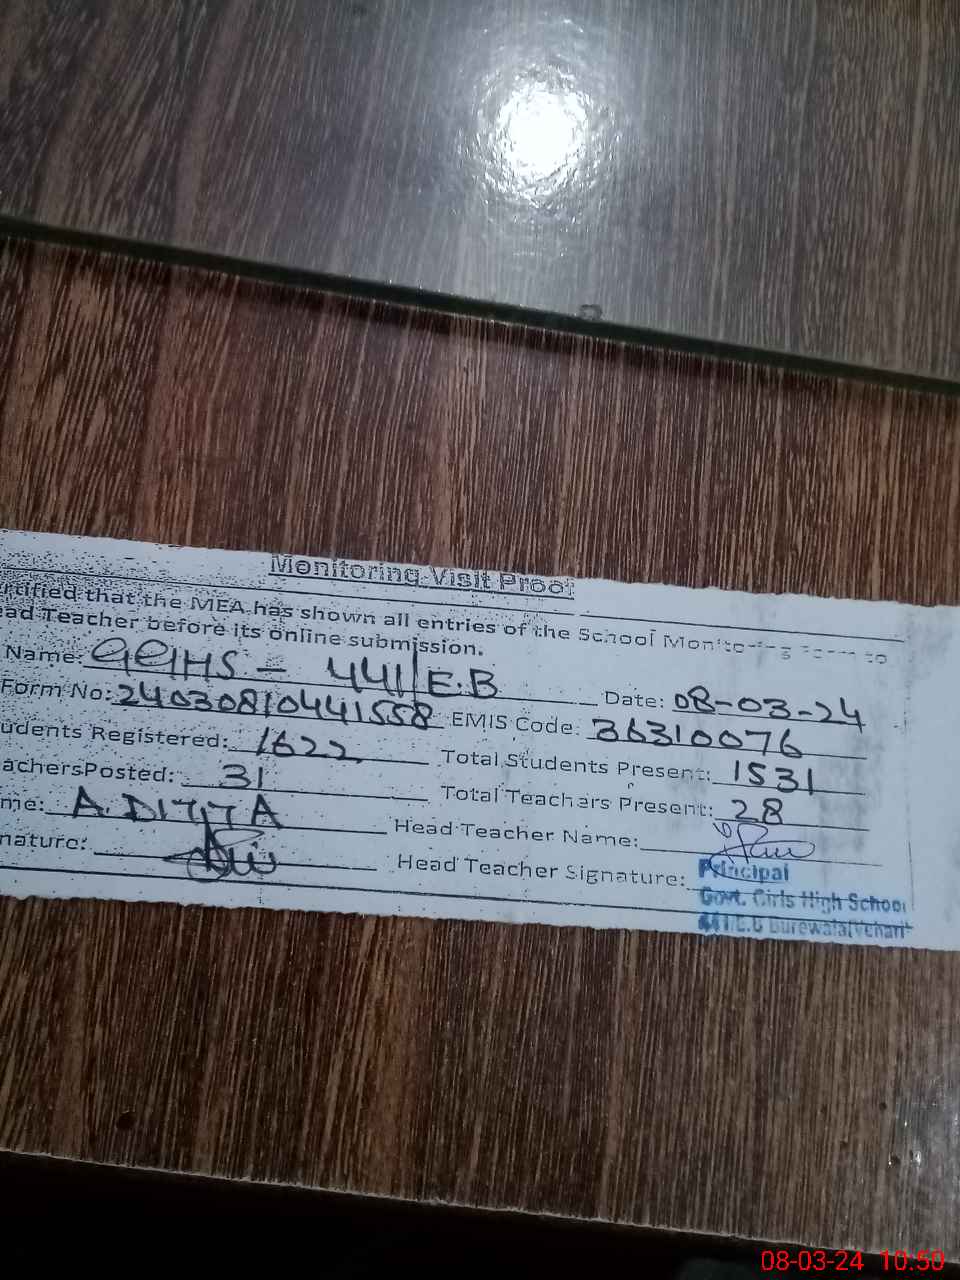 Monitoring Visit Proof
rtified that the MEA has shown all entries of the School Monitoring Form to
ead Teacher before its online submission.
Name: GGHS - 441/E.B Date: 08-03-24
Form No: 24030810441558 EMIS Code: 36310076
udents Registered: 1622 Total Students Present: 1531
achersPosted: 31 Total Teachers Present: 28
me: A. DITTA Head Teacher Name:
nature: Head Teacher Signature:
Principal
Govt. Girls High School
441/E.B Burewala(Vehari
08-03-24 10:50